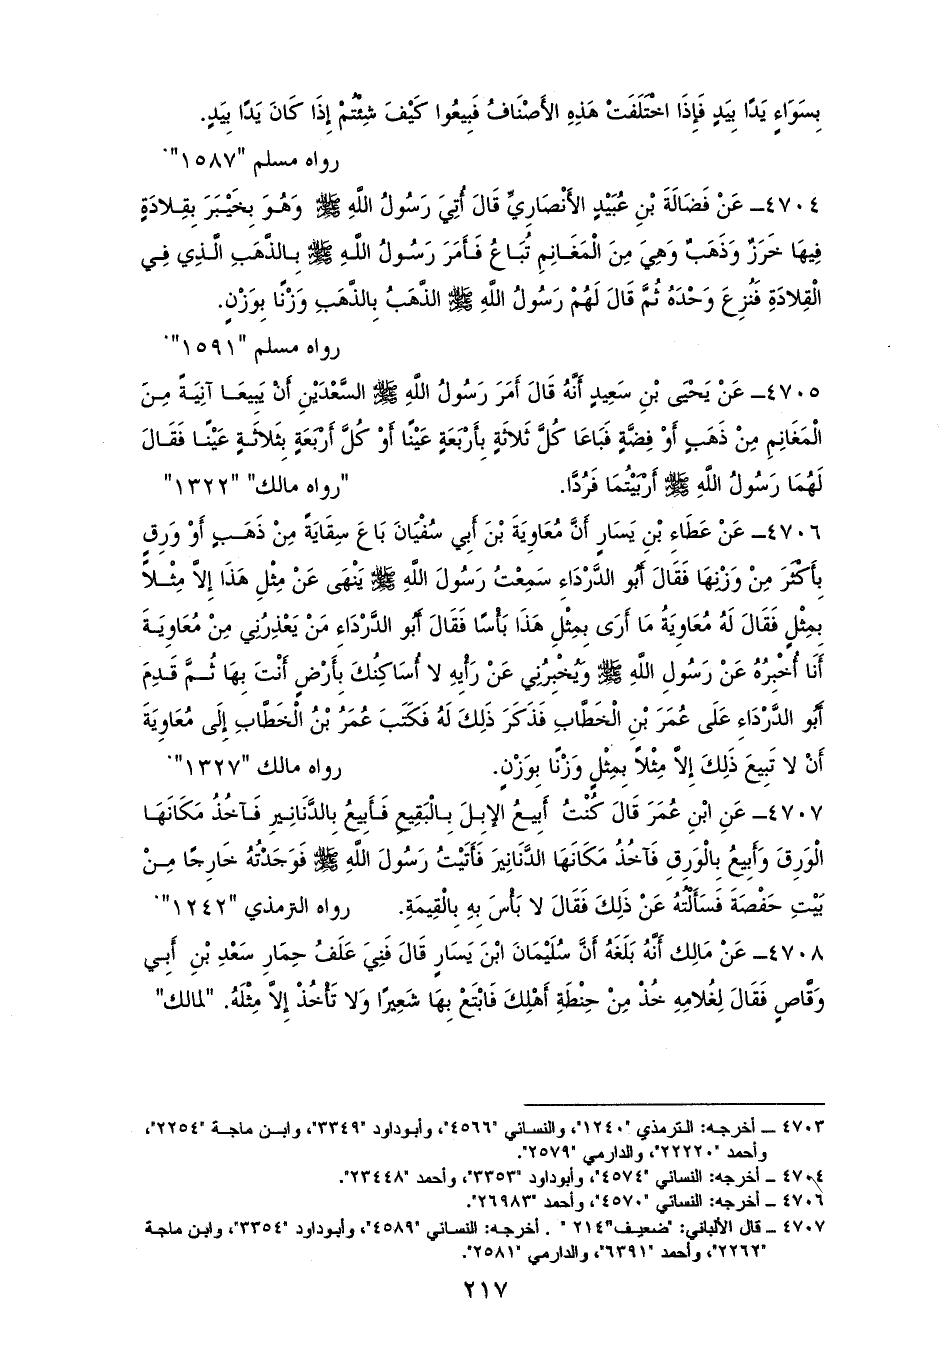 بِسَوَاءٍ يَدًا بِيَدٍ فَإِذَا اخْتَلَفَتْ هَذِهِ الأَصْنَافُ فَبِيعُوا كَيْفَ شِئْتُمْ إِذَا كَانَ يَدًا بِيَدٍ.
رواه مسلم "١٥٨٧".
٤٧٠٤ـ عَنْ فَضَالَةَ بْنِ عُبَيْدٍ الأَنْصَارِيِّ قَالَ أُتِيَ رَسُولُ اللَّهِ ﷺ وَهُوَ بِخَيْبَرَ بِقِلادَةٍ
فِيهَا خَرَزٌ وَذَهَبٌ وَهِيَ مِنَ الْمَغَانِمِ تُبَاعُ فَأَمَرَ رَسُولُ اللَّهِ ﷺ بِالذَّهَبِ الَّذِي فِي
الْقِلادَةِ فَنُزِعَ وَحْدَهُ ثُمَّ قَالَ لَهُمْ رَسُولُ اللَّهِ ﷺ الذَّهَبُ بِالذَّهَبِ وَزْنًا بِوَزْنٍ.
رواه مسلم "١٥٩١".
٤٧٠٥ـ عَنْ يَحْيَى بْنِ سَعِيدٍ أَنَّهُ قَالَ أَمَرَ رَسُولُ اللَّهِ ﷺ السَّعْدَيْنِ أَنْ يَبِيعَا آنِيَةً مِنَ
الْمَغَانِمِ مِنْ ذَهَبٍ أَوْ فِضَّةٍ فَبَاعَا كُلَّ ثَلاثَةٍ بِأَرْبَعَةٍ عَيْنًا أَوْ كُلَّ أَرْبَعَةٍ بِثَلاثَةٍ عَيْنًا فَقَالَ
لَهُمَا رَسُولُ اللَّهِ ﷺ أَرْبَيْتُمَا فَرُدَّا. "رواه مالك" "١٣٢٢"
٤٧٠٦ـ عَنْ عَطَاءِ بْنِ يَسَارٍ أَنَّ مُعَاوِيَةَ بْنَ أَبِي سُفْيَانَ بَاعَ سِقَايَةً مِنْ ذَهَبٍ أَوْ وَرِقٍ
بِأَكْثَرَ مِنْ وَزْنِهَا فَقَالَ أَبُو الدَّرْدَاءِ سَمِعْتُ رَسُولَ اللَّهِ ﷺ يَنْهَى عَنْ مِثْلِ هَذَا إِلاَّ مِثْلاً
بِمِثْلٍ فَقَالَ لَهُ مُعَاوِيَةُ مَا أَرَى بِمِثْلِ هَذَا بَأْسًا فَقَالَ أَبُو الدَّرْدَاءِ مَنْ يَعْذِرُنِي مِنْ مُعَاوِيَةَ
أَنَا أُخْبِرُهُ عَنْ رَسُولِ اللَّهِ ﷺ وَيُخْبِرُنِي عَنْ رَأْيِهِ لا أُسَاكِنُكَ بِأَرْضٍ أَنْتَ بِهَا ثُمَّ قَدِمَ
أَبُو الدَّرْدَاءِ عَلَى عُمَرَ بْنِ الْخَطَّابِ فَذَكَرَ ذَلِكَ لَهُ فَكَتَبَ عُمَرُ بْنُ الْخَطَّابِ إِلَى مُعَاوِيَةَ
أَنْ لا تَبِيعَ ذَلِكَ إِلاَّ مِثْلاً بِمِثْلٍ وَزْنًا بِوَزْنٍ. رواه مالك "١٣٢٧".
٤٧٠٧ـ عَنِ ابْنِ عُمَرَ قَالَ كُنْتُ أَبِيعُ الإِبِلَ بِالْبَقِيعِ فَأَبِيعُ بِالدَّنَانِيرِ فَآخُذُ مَكَانَهَا
الْوَرِقَ وَأَبِيعُ بِالْوَرِقِ فَآخُذُ مَكَانَهَا الدَّنَانِيرَ فَأَتَيْتُ رَسُولَ اللَّهِ ﷺ فَوَجَدْتُهُ خَارِجًا مِنْ
بَيْتِ حَفْصَةَ فَسَأَلْتُهُ عَنْ ذَلِكَ فَقَالَ لا بَأْسَ بِهِ بِالْقِيمَةِ. رواه الترمذي "١٢٤٢".
٤٧٠٨ـ عَنْ مَالِك أَنَّهُ بَلَغَهُ أَنَّ سُلَيْمَانَ ابْنَ يَسَارٍ قَالَ فَنِيَ عَلَفُ حِمَارِ سَعْدِ بْنِ أَبِي
وَقَّاصٍ فَقَالَ لِغُلامِهِ خُذْ مِنْ حِنْطَةِ أَهْلِكَ فَابْتَعْ بِهَا شَعِيرًا وَلا تَأْخُذْ إِلاَّ مِثْلَهُ. "لمالك"
٤٧٠٣ ـ أخرجه: الترمذي "١٢٤٠"، والنسائي "٤٥٦٦"، وأبوداود "٣٣٤٩"، وابن ماجة "٢٢٥٤"،
وأحمد "٢٢٢٢٠"، والدارمي "٢٥٧٩".
٤٧٠٤ ـ أخرجه: النسائي "٤٥٧٤"، وأبوداود "٣٣٥٣"، وأحمد "٢٣٤٤٨".
٤٧٠٦ ـ أخرجه: النسائي "٤٥٧٠"، وأحمد "٢٦٩٨٣".
٤٧٠٧ ـ قال الألباني: "ضعيف"٢١٤" . أخرجه: النسائي "٤٥٨٩"، وأبوداود "٣٣٥٤"، وابن ماجة
"٢٢٦٢"، وأحمد "٦٣٩١"، والدارمي "٢٥٨١".
٢١٧